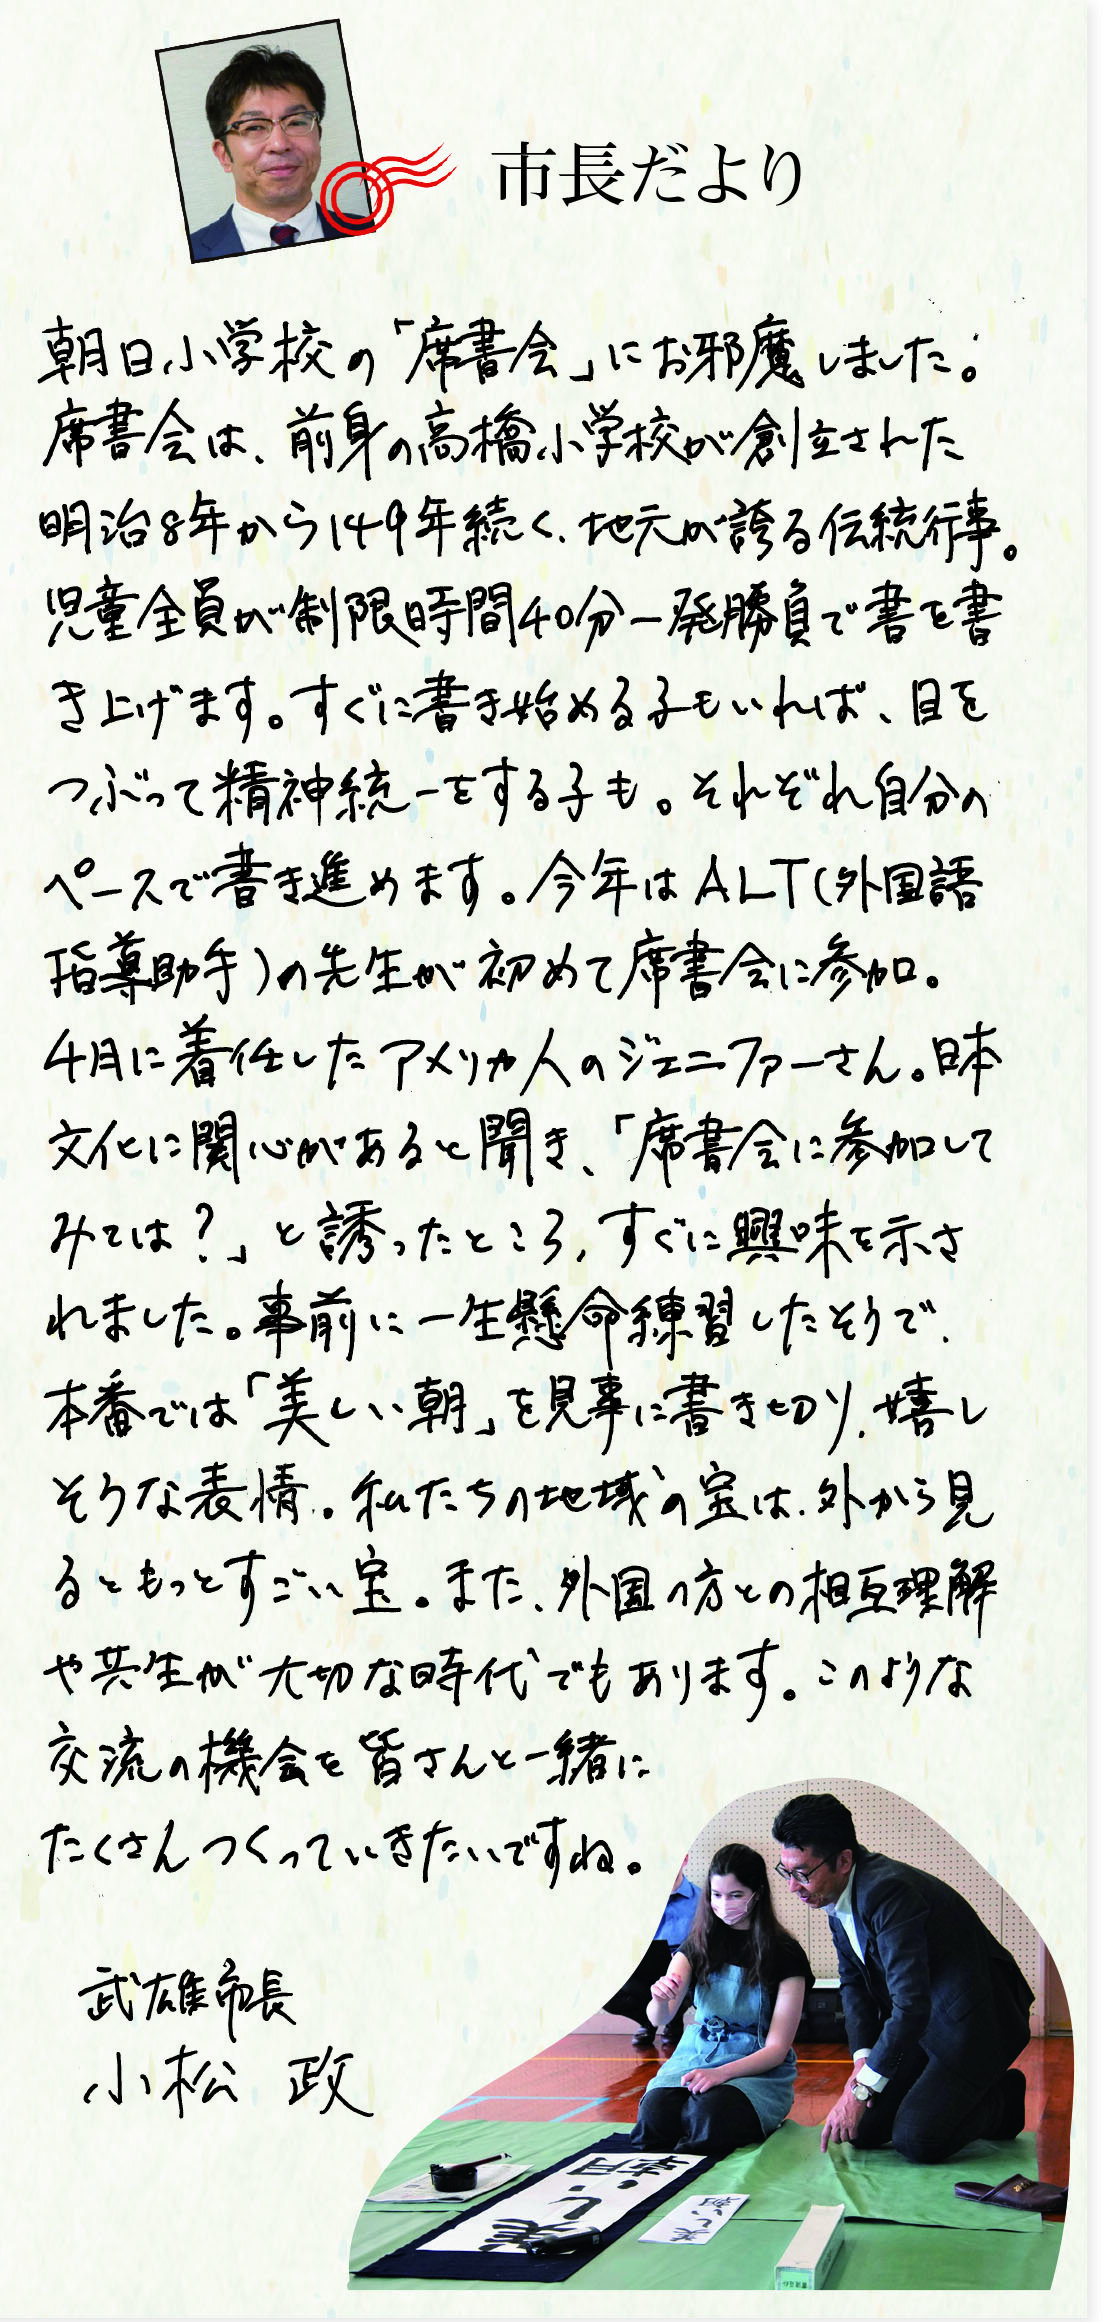 市長だより
朝日小学校の「席書会」にお邪魔しました。
席書会は、前身の高橋小学校が創立された
明治8年から149年続く、地元が誇る伝統行事。
児童全員が制限時間40分一発勝負で書を書
き上げます。すぐに書き始める子もいれば、目を
つぶって精神統一をする子も。それぞれ自分の
ペースで書き進めます。今年はALT(外国語
指導助手)の先生が初めて席書会に参加。
4月に着任したアメリカ人のジェニファーさん。日本
文化に関心があると聞き、「席書会に参加して
みては?」と誘ったところ、すぐに興味を示さ
れました。事前に一生懸命練習したそうで、
本番では「美しい朝」を見事に書き切り、嬉し
そうな表情。私たちの地域の宝は、外から見
るともっとすごい宝。また、外国の方との相互理解
や共生が大切な時代でもあります。このような
交流の機会を皆さんと一緒に
たくさんつくっていきたいですね。
武雄市長
小松 政